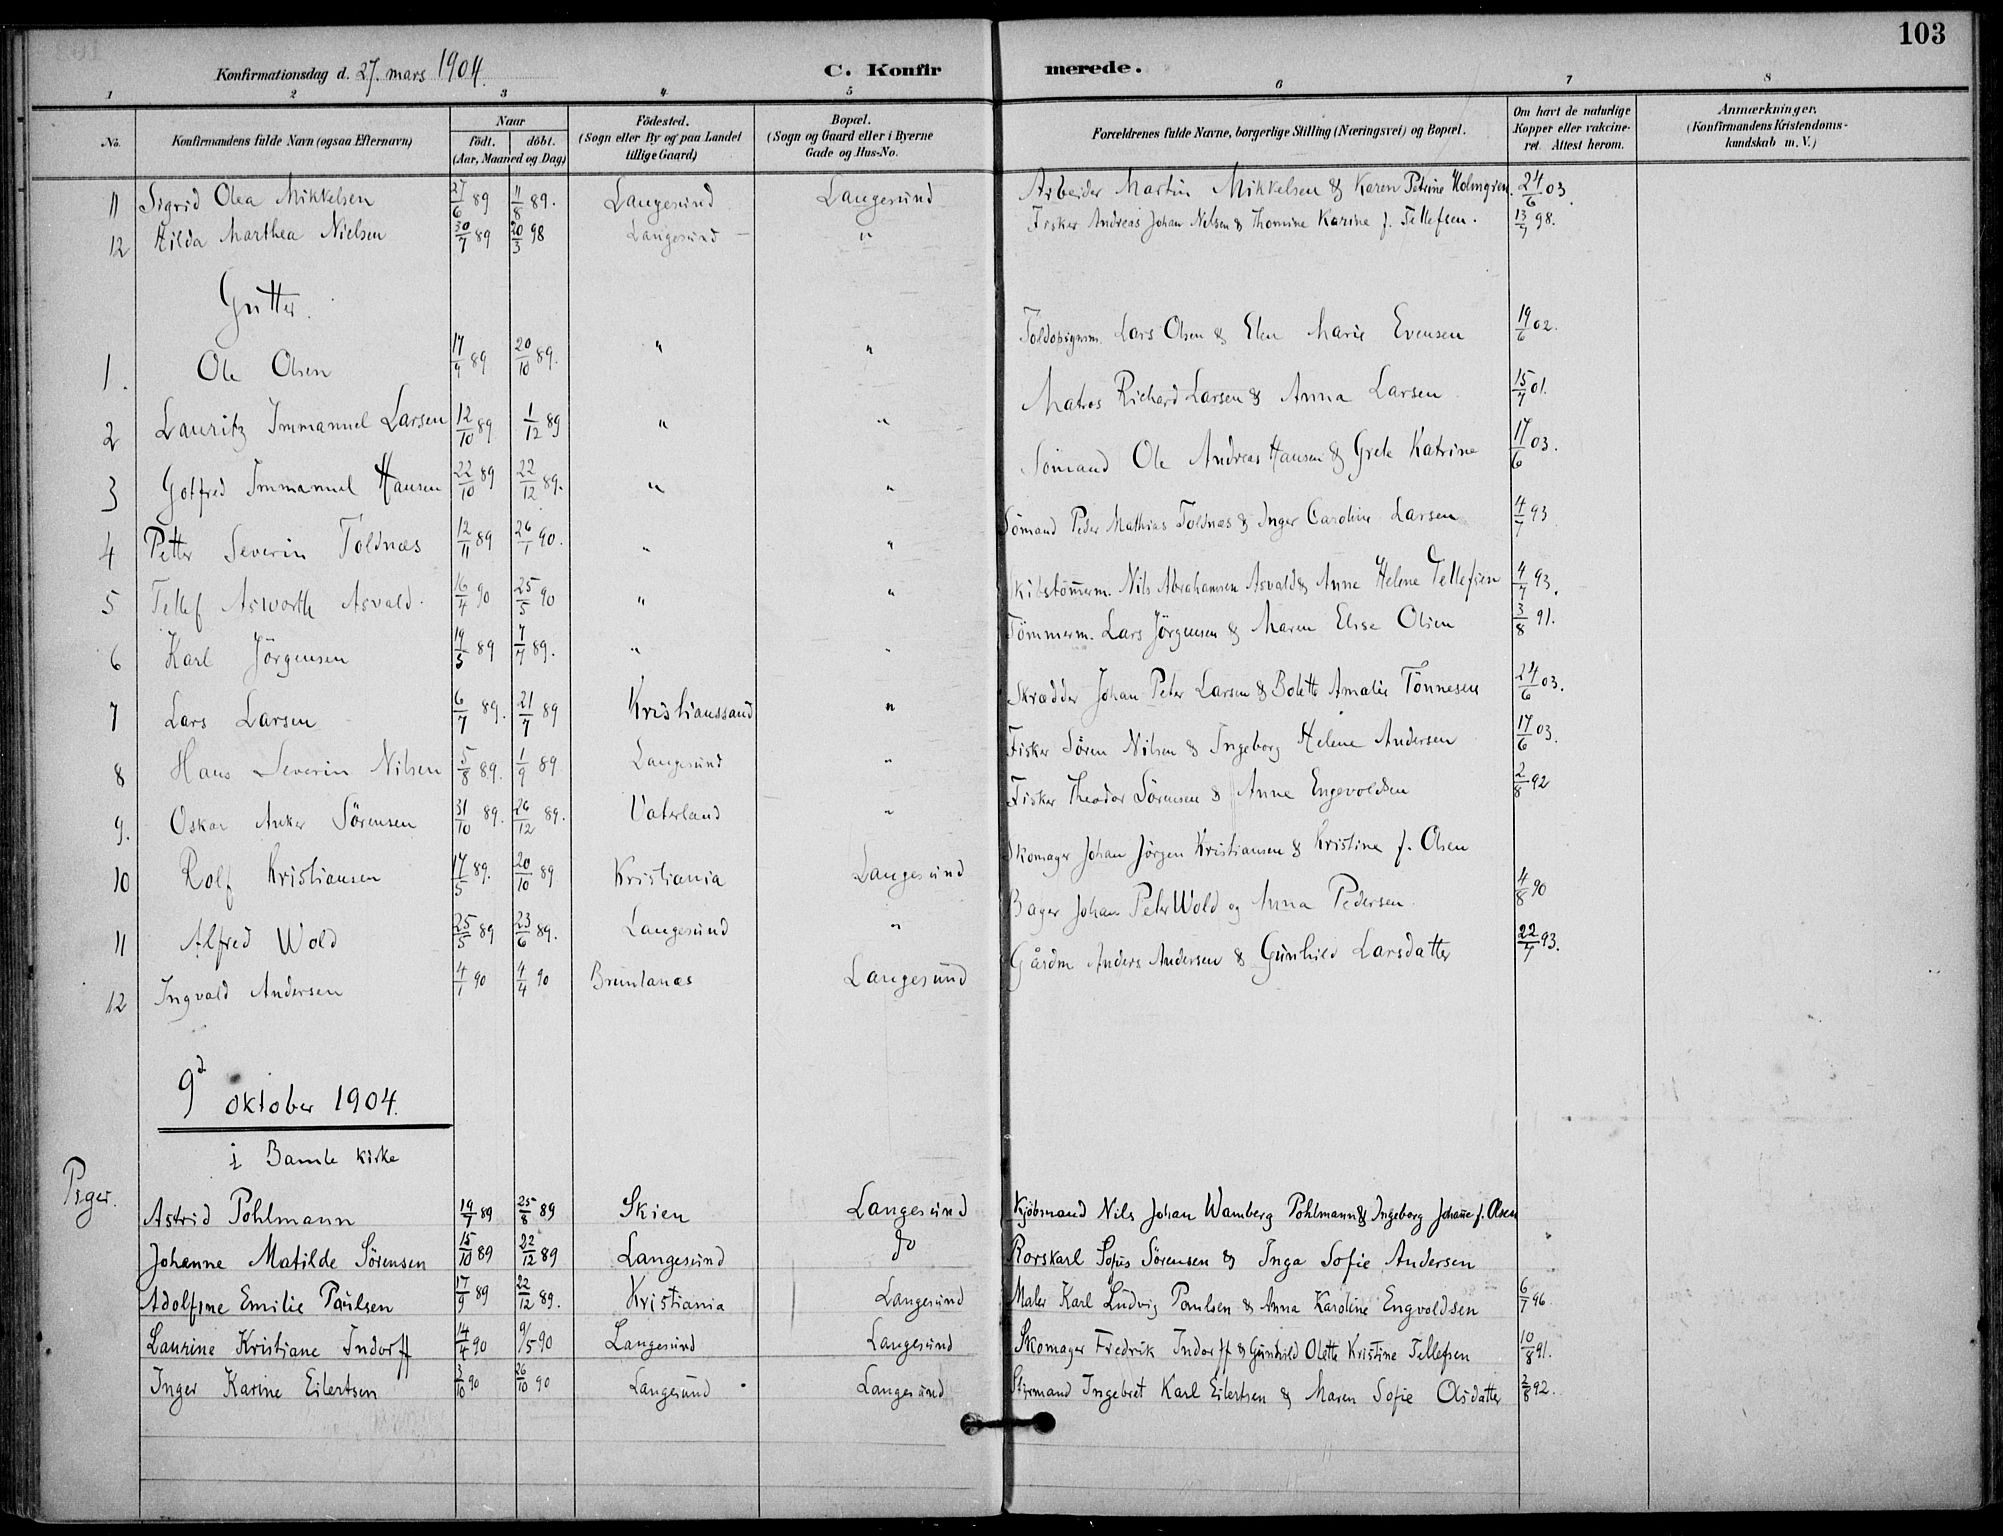 103
Konfirmationsdag d. 27. mars 1904. C. Konfirmerede.
1 2 3 4 5 6 7 8
No. Konfirmandens fulde Navn (ogsaa Efternavn) Naar födt. döbt. (Aar, Maaned og Dag) Födested. (Sogn eller By og paa Landet tillige Gaard) Bopæl. (Sogn og Gaard eller i Byerne Gade og Hus-No. Forældrenes fulde Navne, borgerlige Stilling (Næringsvei) og Bopæl. Om havt de naturlige Kopper eller vakcineret. Attest herom. Anmærkninger. (Konfirmandens Kristendomskundskab m. V.)
11 Sigrid Olea Mikkelsen 27/6 89 11/8 89. Langesund Langesund Arbeider Martin Mikkelsen & Karen Petrine Holmgren. 24/6 03.
12 Hilda Marthea Nielsen 30/7 89 20/3 98 Langesund " Fisker Andreas Johan Nelsen & Thomine Karine f. Tellefsen. 13/7 98.
Gutter.
1. Ole Olsen 17/9 89 20/10 89. " " Toldopsynsm. Lars Olsen & Elen Marie Evensen 19/6 02.
2 Lauritz Immanuel Larsen 12/10 89 1/12 89 " " Matros Richard Larsen & Anna Larsen 15/7 01.
3 Gotfred Immanuel Hansen 22/10 89 22/12 89. " " Sömand Ole Andreas Hansen & Grete Katrine 17/6 03.
4 Petter Severin Toldnæs 12/11 89 26/1 90. " " Sömand Peder Mathias Toldnæs & Inger Caroline Larsen 4/7 93
5 Tellef Asworth Asvald. 16/4 90 25/5 90 " " Skibstömmerm. Nils Abrahamsen Asvald & Anne Helene Tellefsen 4/7 93.
6 Karl Jörgensen 19/5 89 7/7 89. " " Tömmerm. Lars Jörgensen & Maren Elise Olsen 3/8 91.
7 Lars Larsen 6/7 89. 21/7 89 Kristianssand " Skrædder Johan Peter Larsen & Bolette Amalie Tönnesen 24/6 03.
8 Hans Severin Nilsen 5/8 89. 1/9 89 Langesund " Fisker Sören Nilsen & Ingeborg Helene Andersen 17/6 03.
9. Oskar Anker Sörensen 31/10 89. 26/12 89. Vaterland " Fisker Theodor Sörensen & Anne Engevoldsen 2/8 92
10 Rolf Kristiansen 17/5 89. 20/10 89 Kristiania Langesund Skomager Johan Jörgen Kristiansen & Kristine f. Olsen
11 Alfred Wold 25/5 89 23/6 89. Langesund " Bager Johan Peter Wold og Anna Pedersen. 4/8 90
12 Ingvald Andersen 4/1 90 4/4 90 Brunlanæs Langesund Gårdm Anders Andersen & Gunhild Larsdatter 22/7 93.
9d oktober 1904.
i Bamle kirke
Piger.
Astrid Pohlmann 19/7 89 25/8 89 Skien Langesund Kjöbmand Nils Johan Wamberg Pohlmann & Ingeborg Johanne f. Olsen
Johanne Matilde Sörensen 15/10 89 22/12 89 Langesund do Rorskarl Sofus Sörensen & Inga Sofie Andersen
Adolfine Emilie Paulsen 17/9 89 22/12 89. Kristiania Langesund Maler Karl Ludvig Paulsen & Anna Karoline Engvoldsen 6/7 96
Laurine Kristiane Indorff 14/4 90 9/5 90 Langesund Langesund Skomager Fredrik Indorff & Gunhild Olette Kristine Tellefsen 10/8 91.
Inger Karine Eilertsen 3/10 90 26/10 90 Langesund Langesund Styrmand Ingebret Karl Eilertsen & Maren Sofie Olsdatter 2/8 92.